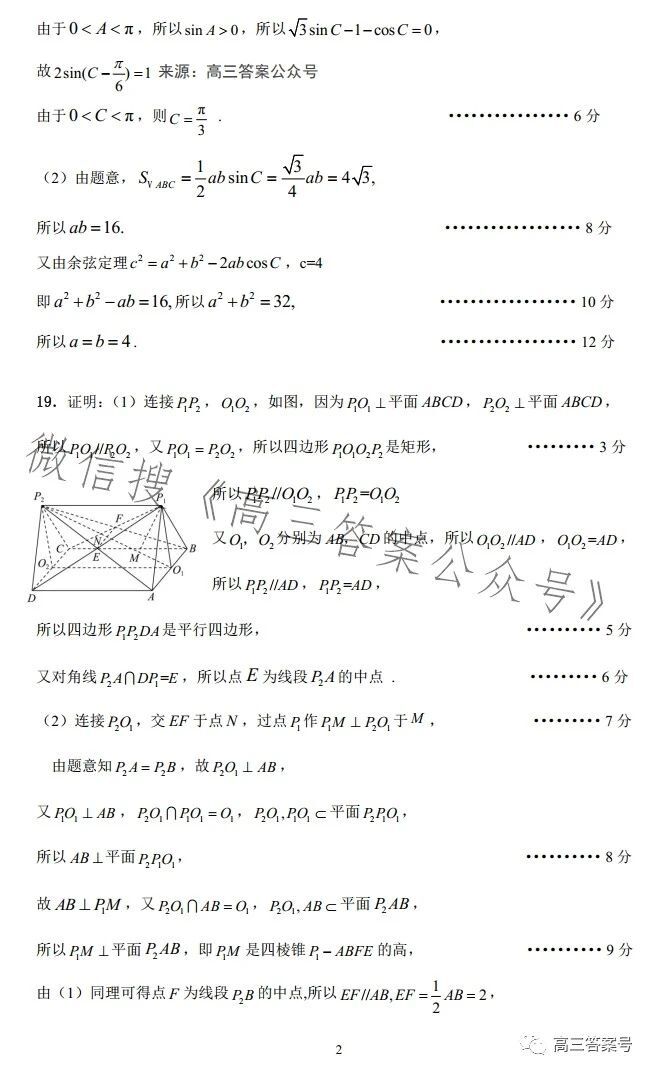 由于0 < A < π，所以sin A > 0，所以√3 sin C −1− cos C = 0，
故2sin(C − π/6) =1 来源：高三答案公众号
由于0 < C < π，则C = π/3 . ················· 6 分
（2）由题意，S_{V ABC} = 1/2 ab sin C = √3/4 ab = 4√3,
所以ab = 16. ·················· 8 分
又由余弦定理c² = a² + b² − 2ab cos C，c=4
即a² + b² − ab = 16, 所以a² + b² = 32, ·················· 10 分
所以a = b = 4 . ·················· 12 分
19．证明：（1）连接P₁P₂，O₁O₂，如图，因为P₁O₁ ⊥平面ABCD，P₂O₂ ⊥平面ABCD，
所以P₁O₁//P₂O₂，又P₁O₁ = P₂O₂，所以四边形P₁O₁O₂P₂是矩形， ········· 3 分
所以P₁P₂//O₁O₂，P₁P₂=O₁O₂
又O₁，O₂分别为AB，CD的中点，所以O₁O₂//AD，O₁O₂=AD，
所以P₁P₂//AD，P₁P₂=AD，
P₂ P₁ F C N E M B O₂ O₁ D A
所以四边形P₁P₂DA是平行四边形， ·········· 5 分
又对角线P₂A∩DP₁=E，所以点E为线段P₂A的中点． ········· 6 分
（2）连接P₂O₁，交EF于点N，过点P₁作P₁M ⊥ P₂O₁于M， ········· 7 分
由题意知P₂A = P₂B，故P₂O₁ ⊥ AB，
又P₁O₁ ⊥ AB，P₂O₁∩P₁O₁ = O₁，P₂O₁, P₁O₁ ⊂平面P₂P₁O₁，
所以AB ⊥平面P₂P₁O₁， ·········· 8 分
故AB ⊥ P₁M，又P₂O₁∩AB = O₁，P₂O₁, AB ⊂平面P₂AB，
所以P₁M ⊥平面P₂AB，即P₁M是四棱锥P₁ − ABFE的高， ·········· 9 分
由（1）同理可得点F为线段P₂B的中点,所以EF//AB, EF = 1/2 AB = 2，
2
微信搜《高三答案公众号》
高三答案号